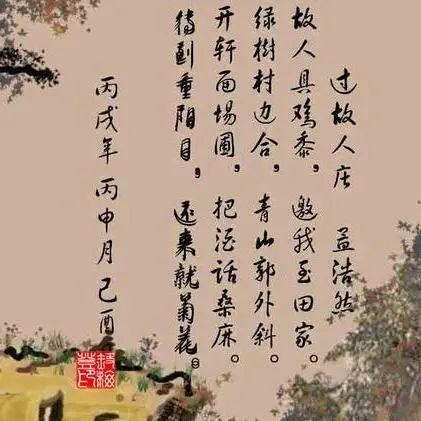 过故人庄 孟浩然
故人具鸡黍，邀我至田家。
绿樹村边合，青山郭外斜。
开轩面場圃，把酒话桑麻。
待到重阳日，還来就菊花。
丙戌年 丙申月 己酉